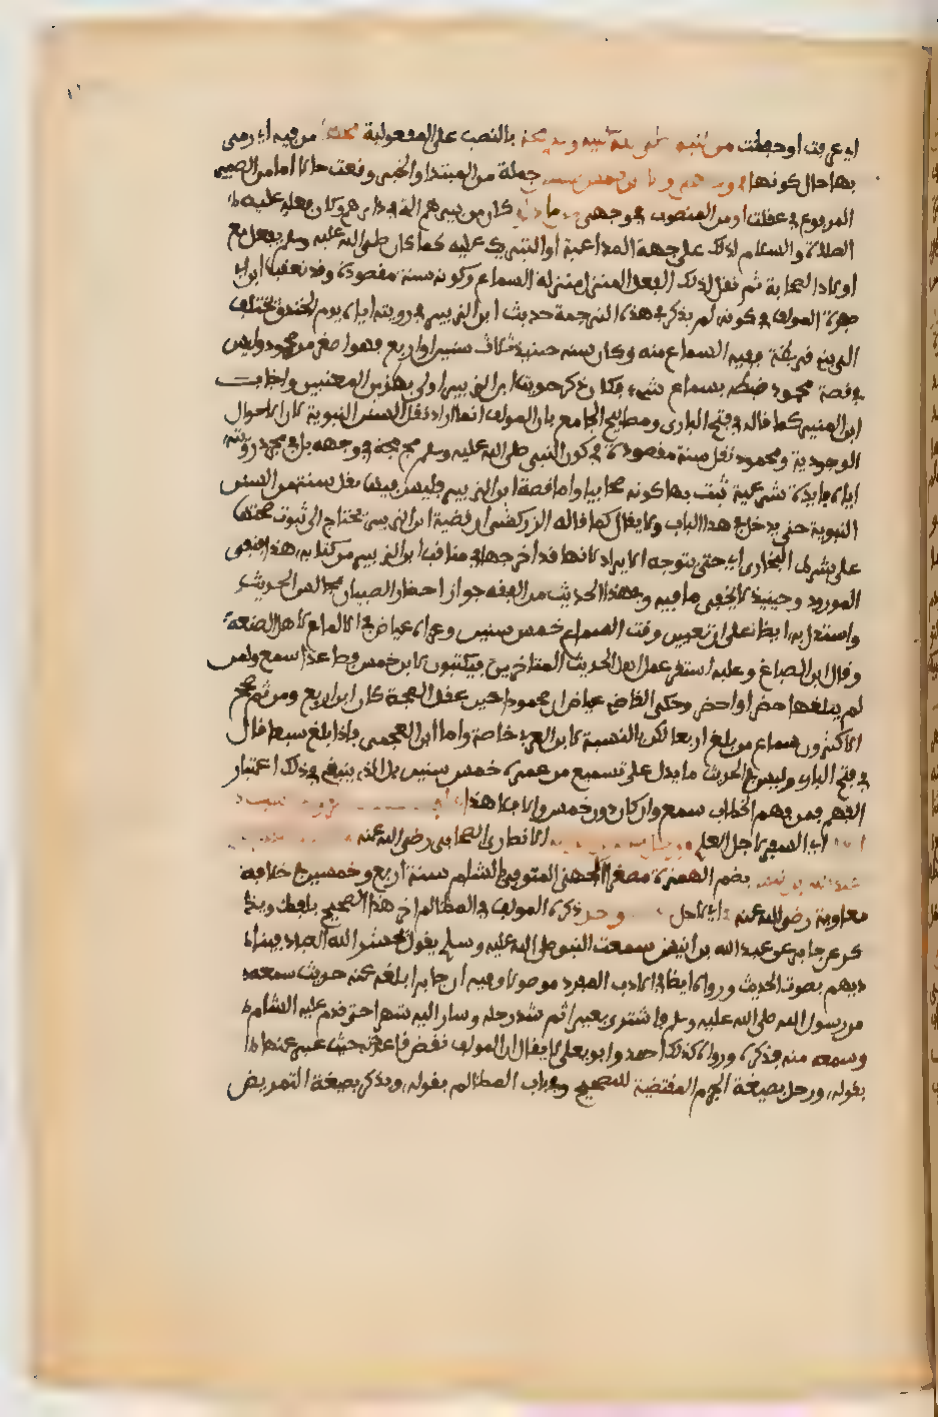 اي عرفت او حفظت من النبي صلى الله عليه وسلم مجة بالنصب على المفعولية مجها من فيه اي رمى
بها حال كونها في وجهي وانا ابن خمس سنين جملة من المبتدا والخبر وقعت حالا اما من الضمير
المرفوع في عقلت او من المنصوب في وجهي من ماء دلو كان من بيرهم التي في دارهم وكان فعله عليه
الصلاة والسلام لذلك على جهة المداعبة او التبريك عليه كما كان صلى الله عليه وسلم يفعل مع
اولاد الصحابة ثم نقل لذلك الفعل المنزل منزلة السماع وكونه سنة مقصودة وقد تعقب ابن ابي
صفرة المولف في كونه لم يذكر في هذه الترجمة حديث ابن الزبير في رويته اباه يوم الخندق يختلف
الى بني قريظة ففيه السماع منه وكان سنه حينيذ ثلاث سنين او اربع فهو اصغر من محمود وليس
في قصة محمود ضبطه بسماع شيء فكان ذكر حديث ابن الزبير اولى بهذين المعنيين واجاب
ابن المنير كما قاله في فتح الباري ومصابيح الجامع بان المولف انما اراد نقل السنن النبوية لا الاحوال
الوجودية ومحمود نقل سنة مقصودة في كون النبي صلى الله عليه وسلم مج مجة في وجهه بل في مجرد رؤيته
اياه فايدة شرعية ثبت بها كونه صحابيا واما قصة ابن الزبير فليس فيها نقل سنة من السنن
النبوية حتى يدخل في هذا الباب ولا يقال كما قاله الزركشي ان قضية ابن الزبير تحتاج الى ثبوت صحتها
على شرط البخاري اي حتى يتوجه الايراد لانها قد اخرجها في مناقب ابن الزبير من كتابه هذا فنفى
المورود وحينيذ لا يخفى ما فيه وفي هذا الحديث من الفقه جواز احضار الصبيان مجالس الحديث
واستدل به ايضا على ان تعيين وقت السماع خمس سنين وعزاه عياض في الالماع لاهل الصنعة
وقال ابن الصلاح وعليه استقر عمل اهل الحديث المتاخرين فيكتبون لابن خمس فصاعدا سمع ولمن
لم يبلغها حضر او احضر وحكى القاضي عياض ان محمودا حين عقل المجة كان ابن اربع ومن ثم صحح
الاكثرون سماع من بلغ اربعا لكن بالنسبة لابن العربي خاصة واما ابن العجمي فاذا بلغ سبعا قال
في فتح الباري وليس في الحديث ما يدل على تسميع من عمره خمس سنين بل الذي ينبغي في ذلك اعتبار
الفهم فمن فهم الخطاب سمع وان كان دون خمس والا فلا هذا
اي السفر لاجل العلم الانصاري الصحابي رضي الله عنه
بضم الهمزة مصغرا الجهني المتوفى بالشام سنة اربع وخمسين في خلافة
معاوية رضي الله عنه اي لاجل ذكره المولف في المظالم اخر هذا الصحيح بلفظ ويذ
كر عن جابر عن عبد الله بن انيس سمعت النبي صلى الله عليه وسلم يقول يحشر الله العباد فينا
ديهم بصوت الحديث ورواه ايضا في الادب المفرد موصولا وفيه ان جابرا بلغه عنه حديث سمعه
من رسول الله صلى الله عليه وسلم فاشترى بعيرا ثم شد رحله وسار اليه شهرا حتى قدم عليه الشام
وسمعه منه فذكره ورواه كذلك احمد وابو يعلى لا يقال ان المولف نقض قاعدته حيث عبر عنها
بقوله ورحل بصيغة الجزم المقتضية للتصحيح وفي باب المظالم بقوله ويذكر بصيغة التمريض